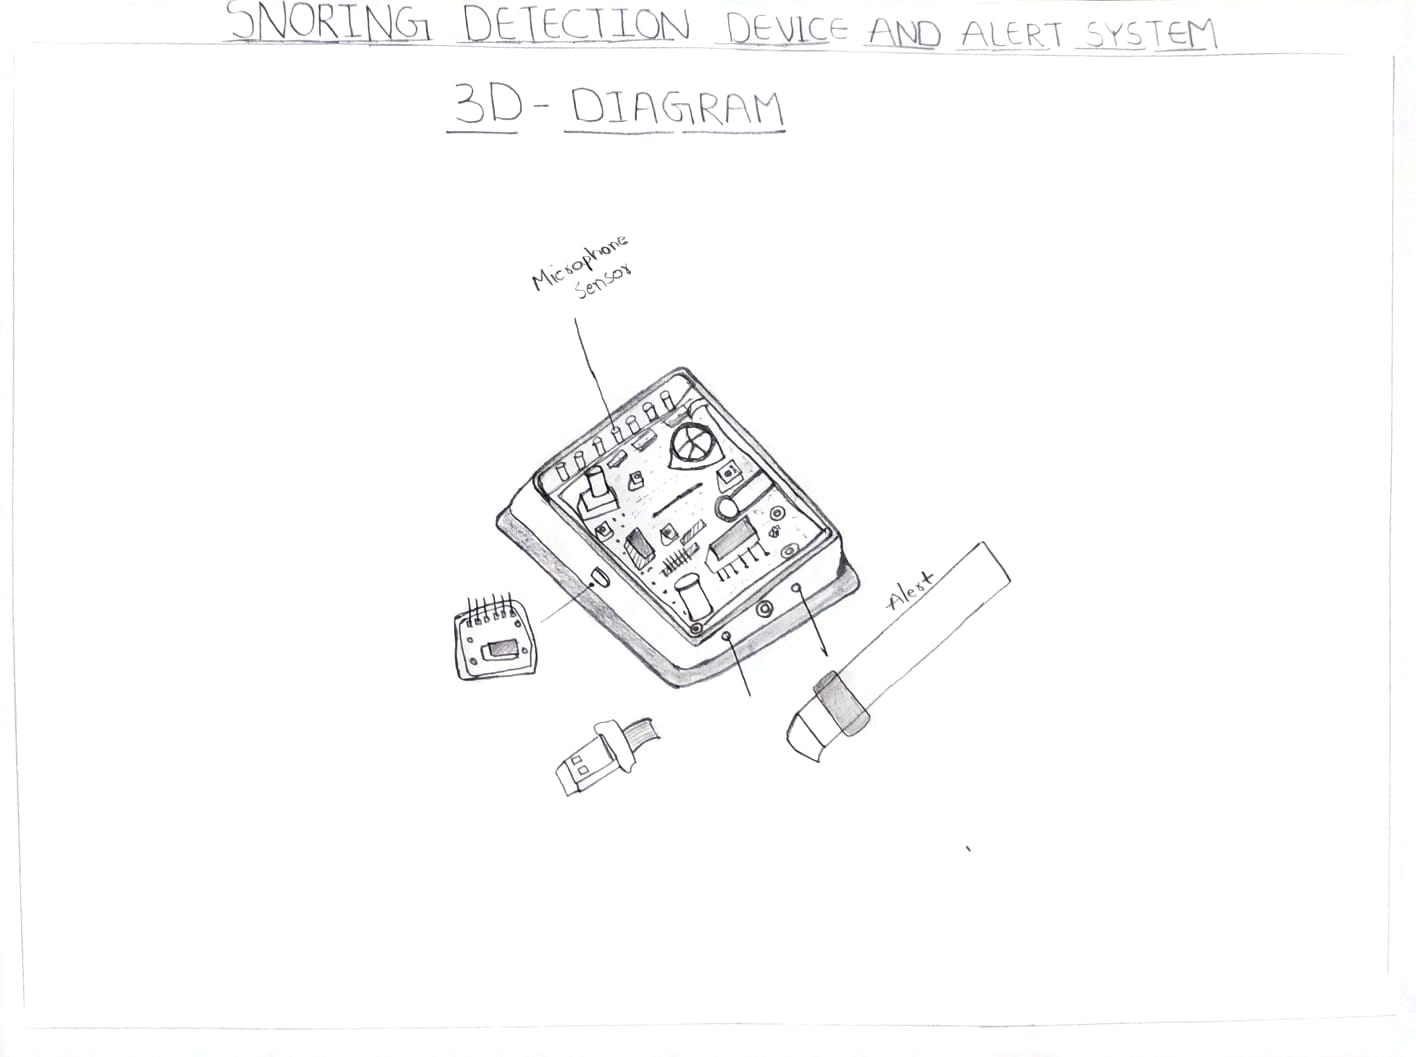 SNORING DETECTION DEVICE AND ALERT SYSTEM
3D - DIAGRAM
Microphone
Sensor
Alert